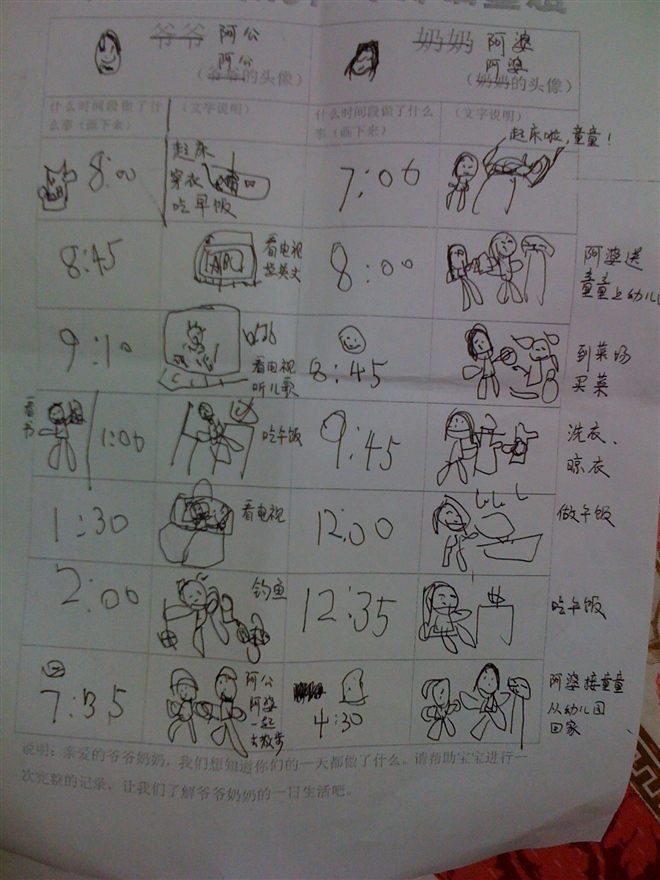 爷爷 阿公
阿公
（爷爷的头像）
奶奶 阿婆
阿婆
（奶奶的头像）
什么时间段做了什么事（画下来）
（文字说明）
什么时间段做了什么事（画下来）
（文字说明）
8:00
起床
穿衣
吃早饭
7:00
起床啦，童童！
8:45
ABC
看电视
8:00
阿婆送
童童上幼儿园
9:10
看电视
听儿歌
8:45
到菜场
买菜
看书
1:00
吃午饭
9:45
洗衣、
晾衣
1:30
看电视
12:00
做午饭
2:00
钓鱼
12:35
吃午饭
7:35
阿公
阿婆
一起
去散步
4:30
阿婆接童童
从幼儿园
回家
说明：亲爱的爷爷奶奶，我们想知道你们的一天都做了什么。请帮助宝宝进行一
次完整的记录，让我们了解爷爷奶奶的一日生活吧。